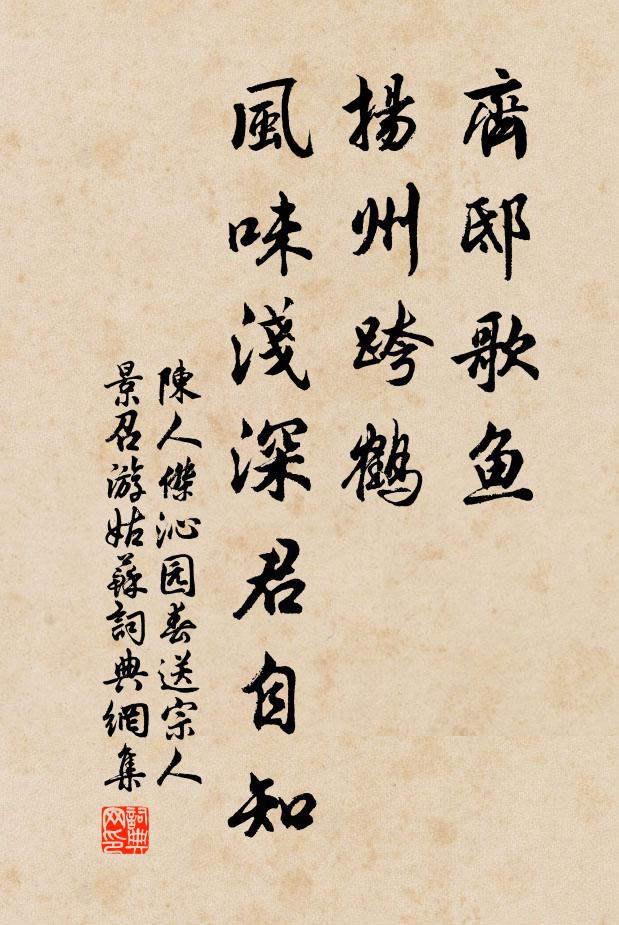 齊邸歌鱼
揚州跨鶴
風味淺深君自知
陳人傑沁园春送宗人
景召游姑蘇詞典網集
詞典
网印